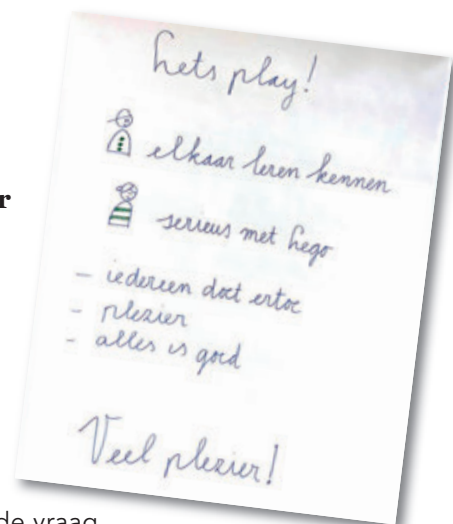 Lets play!
elkaar leren kennen
r
serieus met Lego
- iedereen doet ertoe
- plezier
- alles is goed
Veel plezier!
de vraag